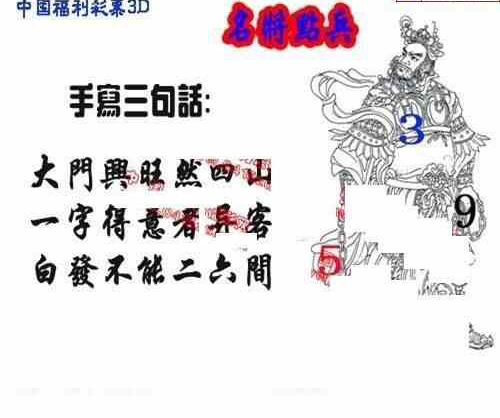 中国福利彩票3D
名將點兵
手寫三句話:
大門興旺然四山
一字得意者異客
白發不能二六間
3
9
5